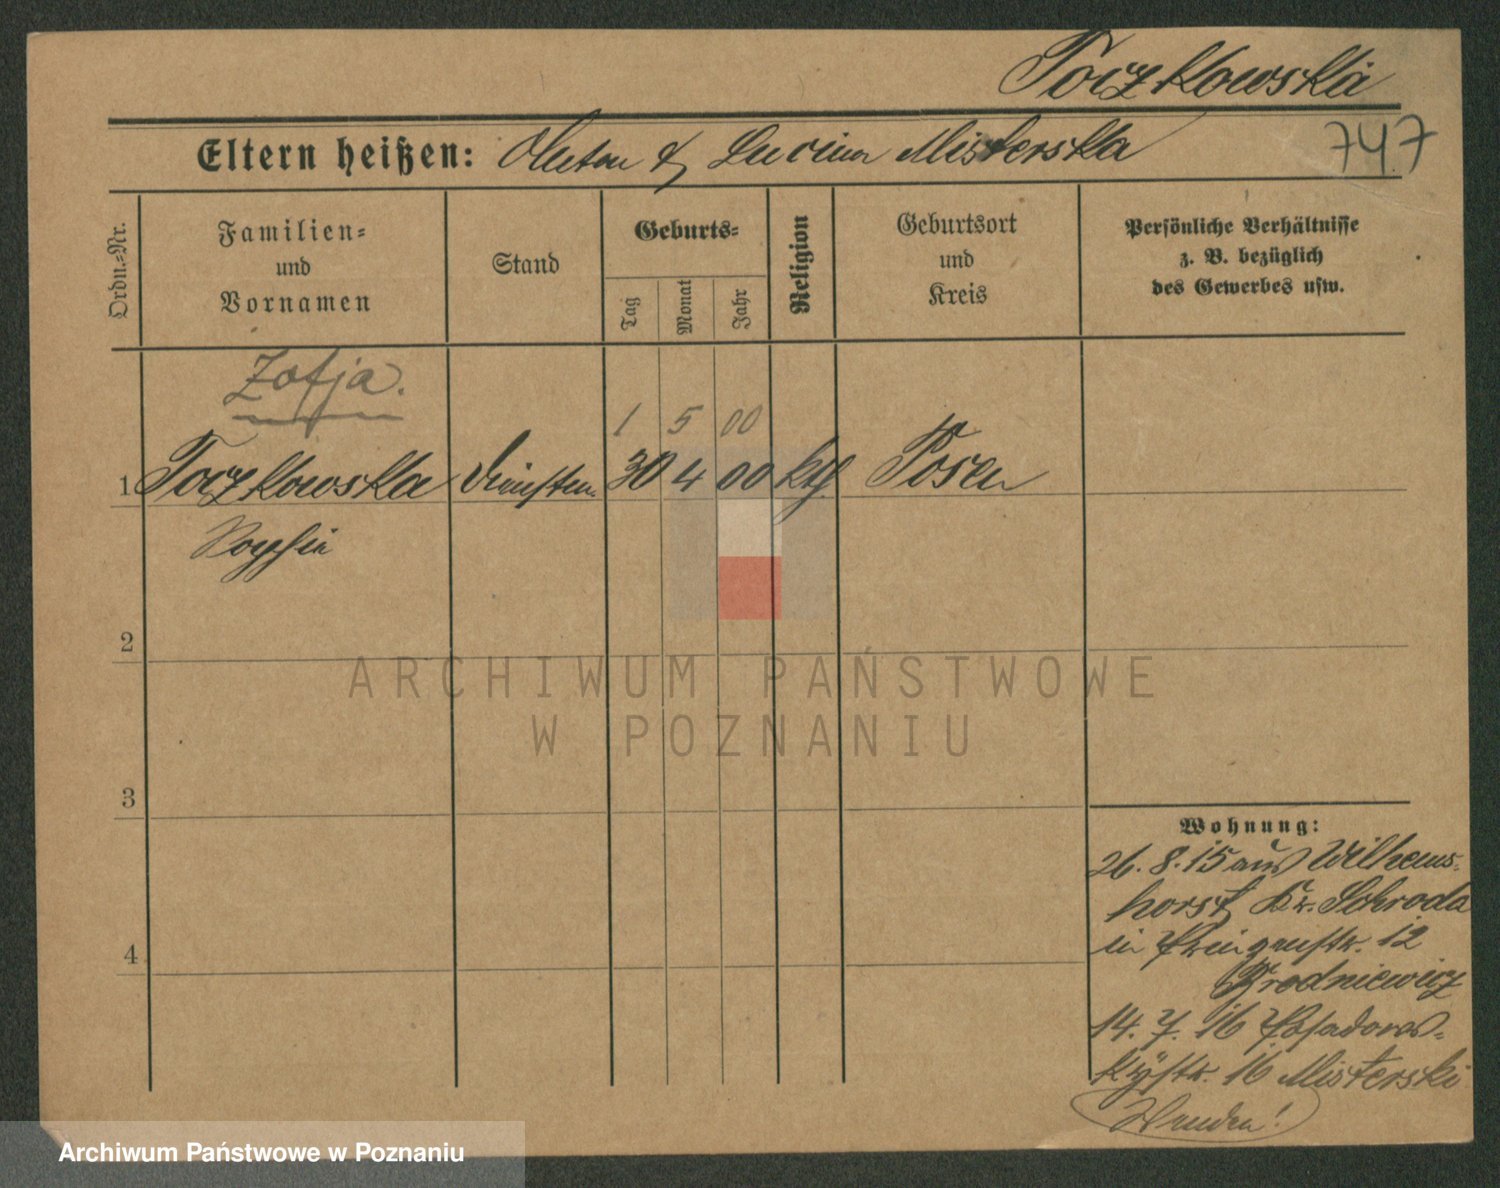 Toczkowska
747
Eltern heißen: Anton & Lucina Misterska
Ordn.-Nr.
Familien-
und
Vornamen
Stand
Geburts-
Tag
Monat
Jahr
Religion
Geburtsort
und
Kreis
Persönliche Verhältnisse
z. B. bezüglich
des Gewerbes usw.
Zofja.
1 5 00
1 Toczkowska 30 4 00 kth. Posen
Sophie
2
3
4
Wohnung:
26. 8. 15 aus Wilhelms-
horst Kr. Schroda
in 12
Brodniewicz
14. 7. 16 Posadows-
kystr. 16 Misterski
Wenden!
ARCHIWUM PAŃSTWOWE
W POZNANIU
Archiwum Państwowe w Poznaniu